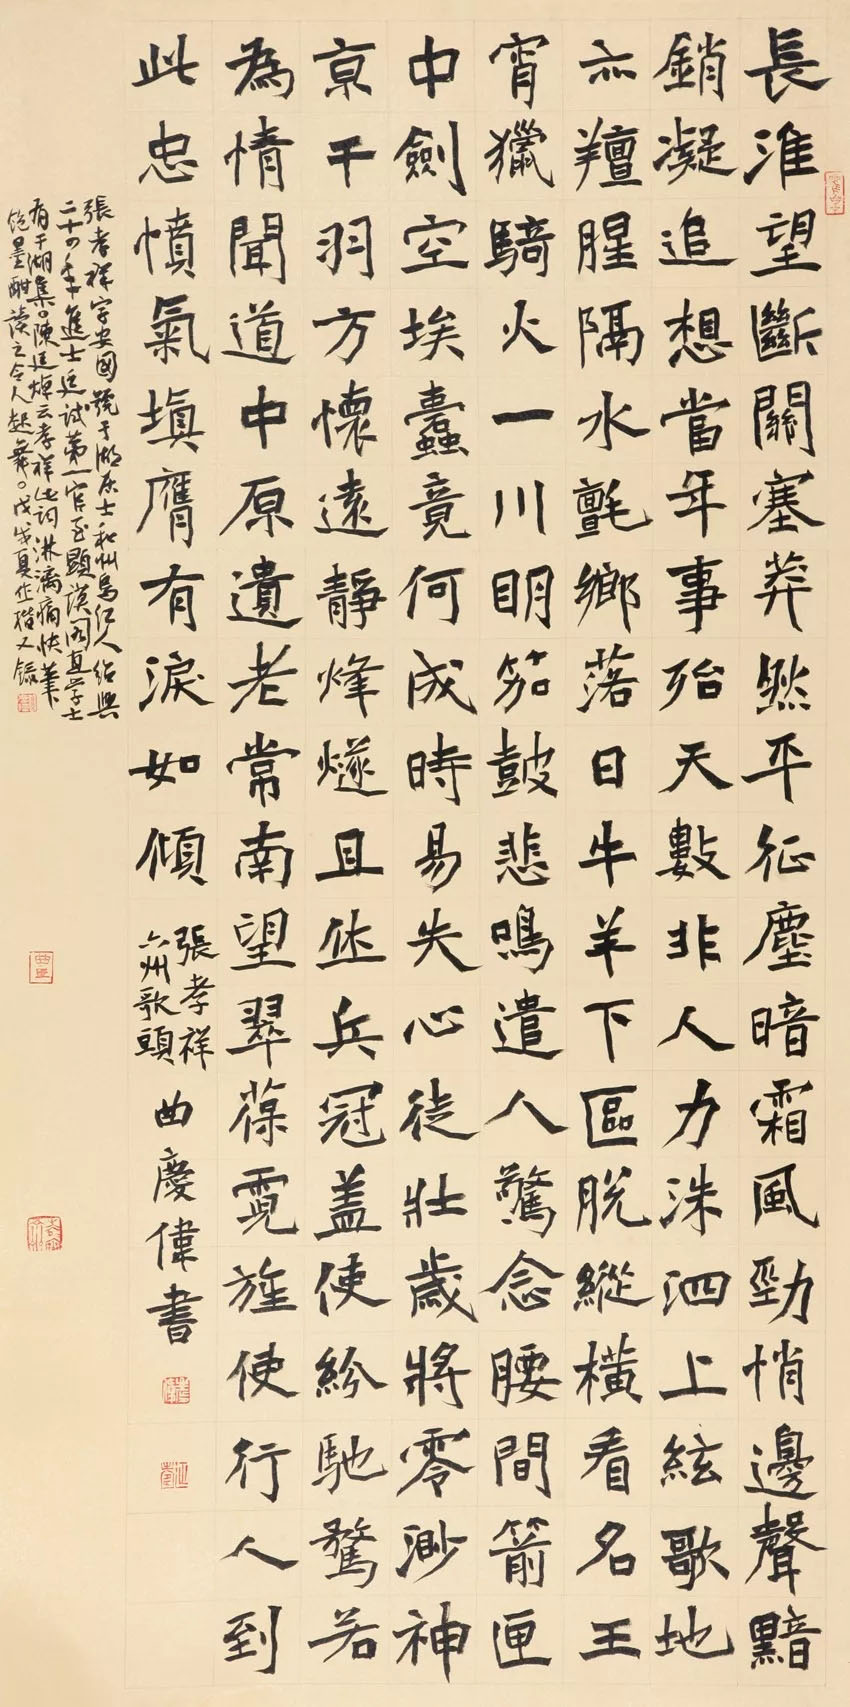 長淮望斷關塞莽然平征塵暗霜風勁悄邊聲黯
銷凝追想當年事殆天數非人力洙泗上絃歌地
亦羶腥隔水氈鄉落日牛羊下區脫縱橫看名王
宵獵騎火一川明笳鼓悲鳴遣人驚念腰間箭匣
中劍空埃蠹竟何成時易失心徒壯歲將零渺神
京干羽方懷遠靜烽燧且休兵冠蓋使紛馳騖若
為情聞道中原遺老常南望翠葆霓旌使行人到
此忠憤氣填膺有淚如傾
張孝祥
六州歌頭
曲慶偉書
張孝祥字安國號于湖居士和州烏江人紹興
二十四年進士廷試第一官至顯謨閣直學士
有于湖集。陳廷焯云孝祥此詞淋漓痛快筆
飽墨酣讀之令人起舞。戊戌夏作楷又錄